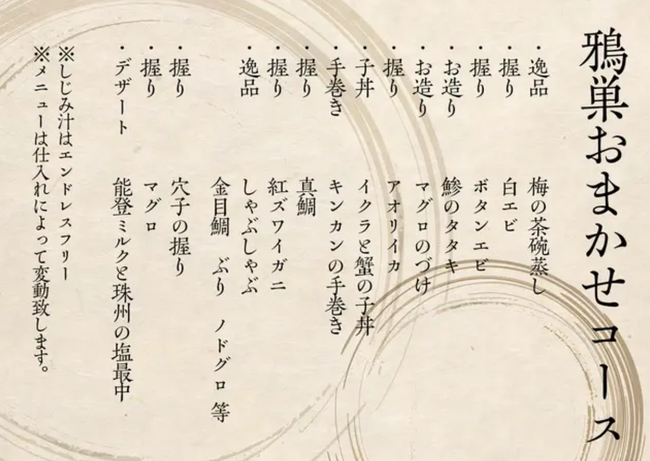 鴉巣おまかせコース
・逸品 梅の茶碗蒸し
・握り 白エビ
・握り ボタンエビ
・お造り 鯵のタタキ
・お造り マグロのづけ
・握り アオリイカ
・子丼 イクラと蟹の子丼
・手巻き キンカンの手巻き
・握り 真鯛
・握り 紅ズワイガニ
・逸品 しゃぶしゃぶ
金目鯛 ぶり ノドグロ 等
・握り 穴子の握り
・握り マグロ
・デザート 能登ミルクと珠州の塩最中
※しじみ汁はエンドレスフリー
※メニューは仕入れによって変動致します。